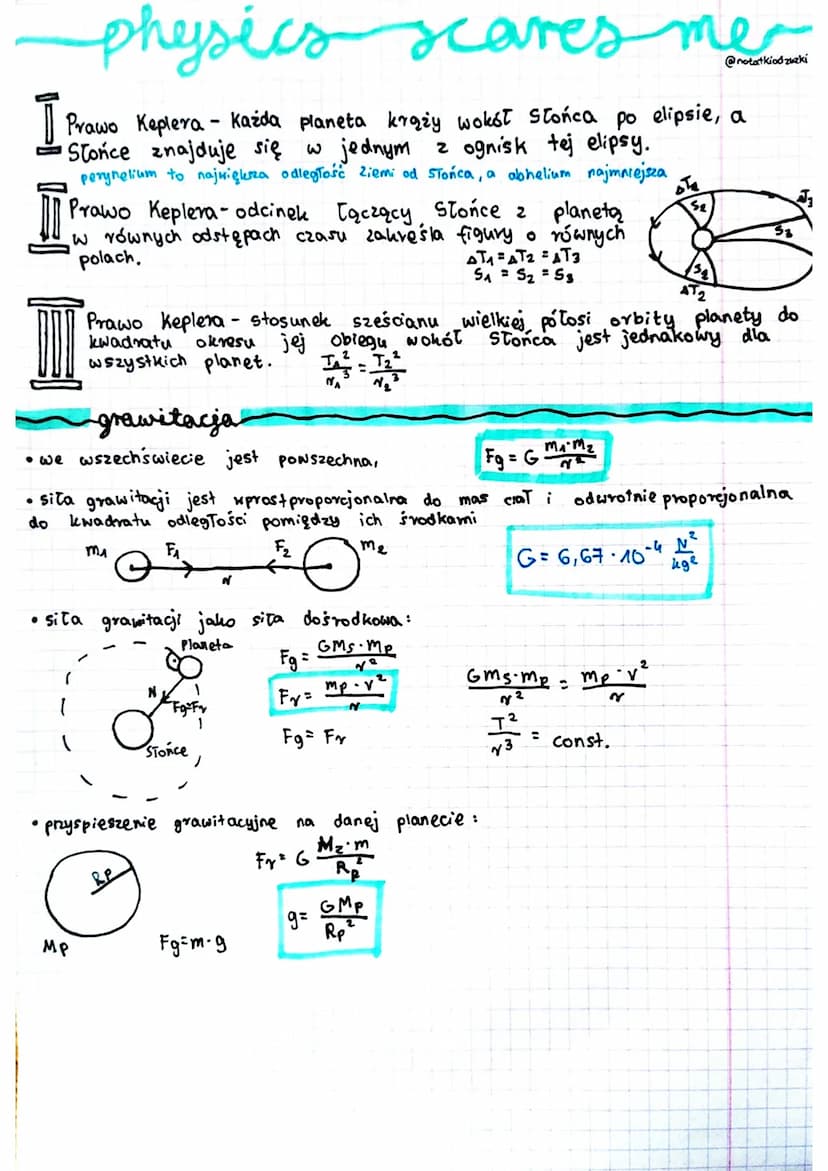 physics scares me
@notatkiodzuzki
I Prawo Keplera - Każda planeta krąży wokół Słońca po elipsie, a
Słońce znajduje się w jednym z ognisk tej elipsy.
peryhelium to największa odległość Ziemi od Słońca, a abhelium najmniejsza
II Prawo Keplera - odcinek łączący Słońce z planetą
w równych odstępach czasu zakreśla figury o równych
polach.
ΔT1 = ΔT2 = ΔT3
S1 = S2 = S3
S2
S3
ΔT2
III Prawo Keplera - stosunek sześcianu wielkiej półosi orbity planety do
kwadratu okresu jej obiegu wokół Słońca jest jednakowy dla
wszystkich planet.
T1²/r1³ = T2²/r2³
grawitacja
• we wszechświecie jest powszechna,
Fg = G m1·m2/r²
• siła grawitacji jest wprost proporcjonalna do mas ciał i odwrotnie proporcjonalna
do kwadratu odległości pomiędzy ich środkami
m1 F1 F2 m2
r
G = 6,67 · 10⁻⁴ N²/kg²
• siła grawitacji jako siła dośrodkowa:
Planeta
r
Fg=Fr
Słońce
Fg = GMs·mp/r²
Fr = mp·v²/r
Fg = Fr
GMs·mp/r² = mp·v²/r
T²/r³ = const.
• przyspieszenie grawitacyjne na danej planecie:
Rp
Mp
Fg=m·g
Fr = G Mz·m/Rp²
g = GMp/Rp²